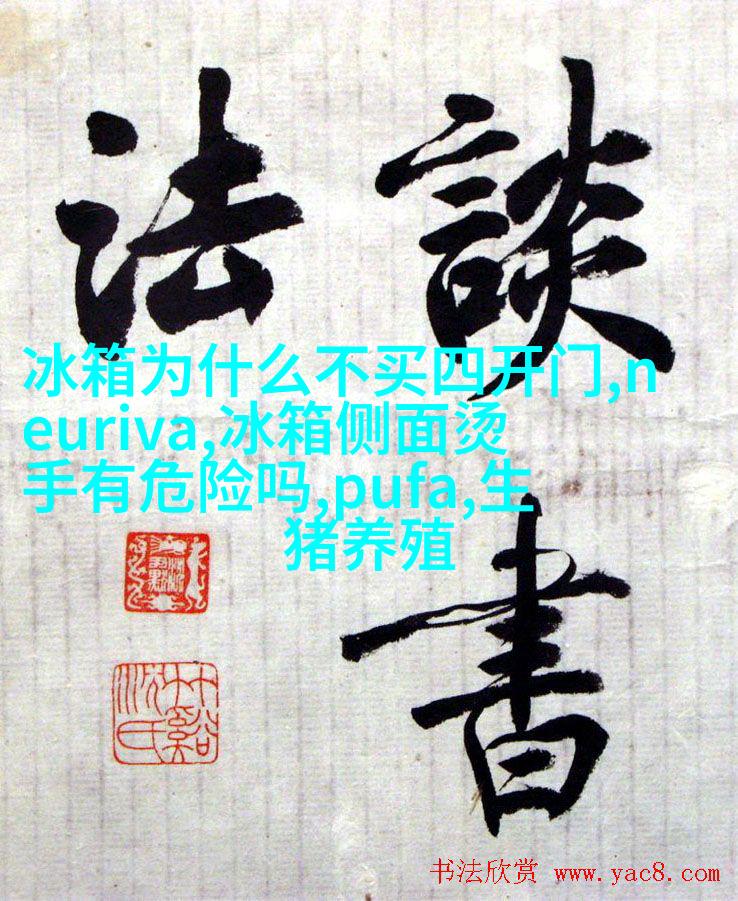 談書
法
冰箱为什么不买四开门,n
euriva,冰箱侧面烫
手有危险吗,pufa,生
猪养殖
书法欣赏 www.yac8.com